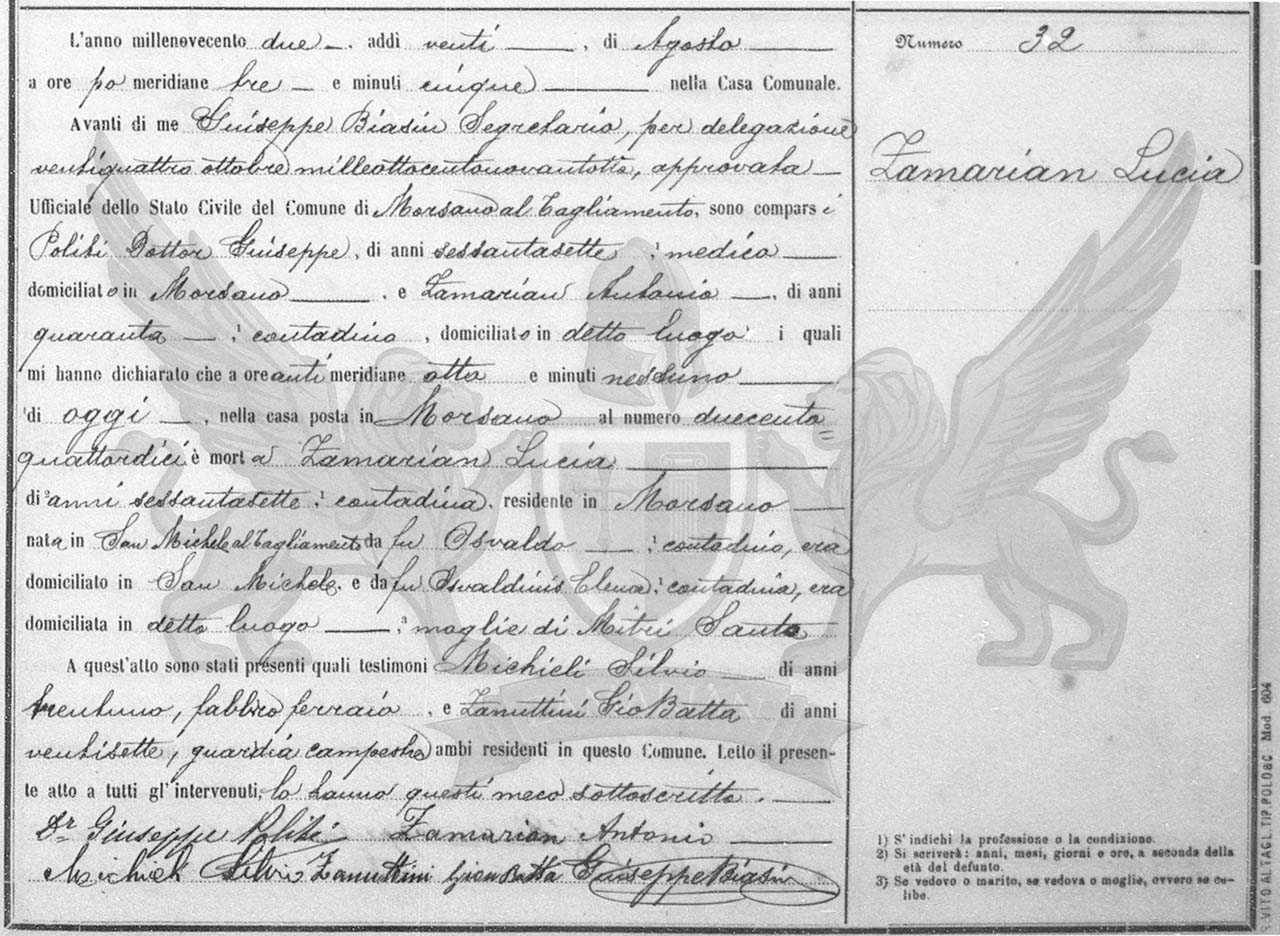 L'anno millenovecento due, addì venti, di Agosto
a ore po meridiane tre e minuti cinque nella Casa Comunale.
Avanti di me Giuseppe Biasin Segretario, per delegazione
ventiquattro ottobre milleottocentonovantotto, approvata
Ufficiale dello Stato Civile del Comune di Morsano al Tagliamento, sono comparsi
Politi Dottor Giuseppe, di anni sessantasette, 1 medico
domiciliato in Morsano, e Zamarian Antonio, di anni
quaranta, 1 contadino, domiciliato in detto luogo i quali
mi hanno dichiarato che a ore anti meridiane otto e minuti nessuno
di oggi, nella casa posta in Morsano al numero duecento=
quattordici è morta Zamarian Lucia
di 2 anni sessantasette, 1 contadina, residente in Morsano
nata in San Michele al Tagliamento da fu Osvaldo, 1 contadino, era
domiciliato in San Michele, e da fu Osvaldinis Elena, 1 contadina, era
domiciliata in detto luogo, 3 moglie di Mitri Santo
A quest'atto sono stati presenti quali testimoni Michieli Silvio di anni
trentuno, fabbro ferraio, e Zanuttini GioBatta di anni
ventisette, guardia campestre ambi residenti in questo Comune. Letto il presen-
te atto a tutti gl'intervenuti, lo hanno questi meco sottoscritto.
Dr Giuseppe Politi Zamarian Antonio
Michieli Silvio Zanuttini Giovbatta Giuseppe Biasin
Numero 32
Zamarian Lucia
1) S'indichi la professione o la condizione.
2) Si scriverà: anni, mesi, giorni e ore, a seconda della
età del defunto.
3) Se vedovo o marito, se vedova o moglie, ovvero se ce-
libe.
S. VITO AL TAGL. TIP. POLO & C. Mod. 604